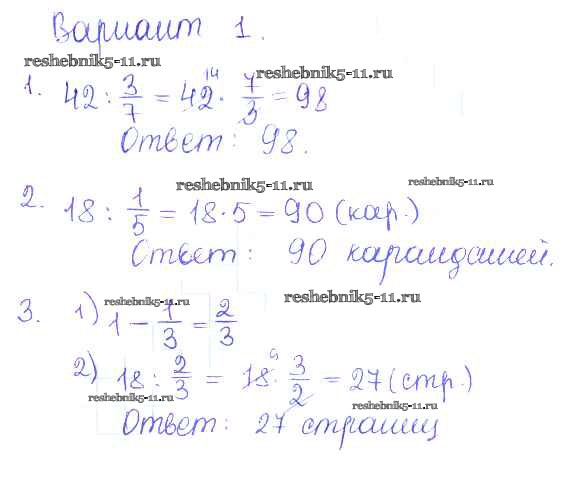 Вариант 1.
reshebnik5-11.ru
1. 42 : 3/7 = 42 14 · 7/3 = 98
reshebnik5-11.ru
Ответ: 98.
reshebnik5-11.ru reshebnik5-11.ru
2. 18 : 1/5 = 18·5 = 90 (кар.)
Ответ: 90 карандашей.
reshebnik5-11.ru reshebnik5-11.ru
3. 1) 1 - 1/3 = 2/3
2) 18 : 2/3 = 18 9 · 3/2 = 27 (стр.)
reshebnik5-11.ru reshebnik5-11.ru
Ответ: 27 страниц